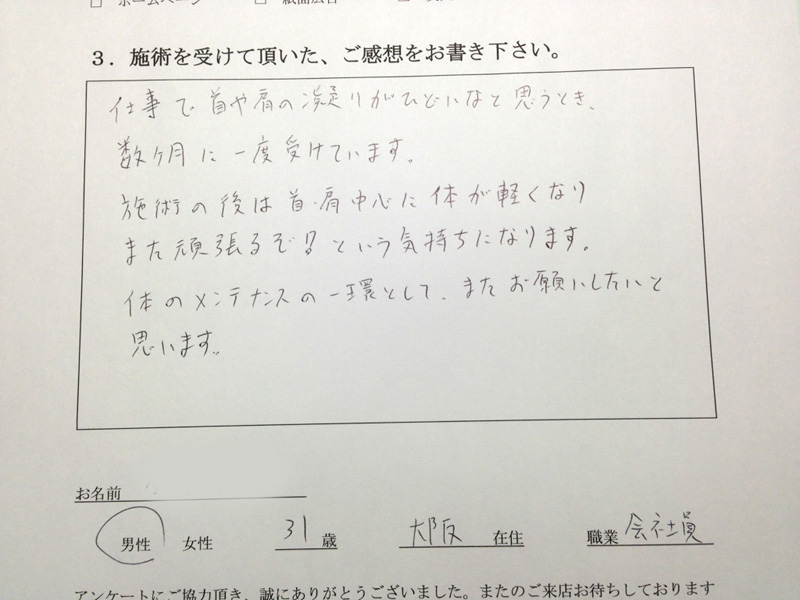 □ ホームページ □ 紙面広告
３．施術を受けて頂いた、ご感想をお書き下さい。
仕事で首や肩の凝りがひどいなと思うとき、
数ヶ月に一度受けています。
施術の後は首・肩中心に体が軽くなり
また頑張るぞ!!という気持ちになります。
体のメンテナンスの一環として、またお願いしたいと
思います。
お名前
男性 女性 31歳 大阪 在住 職業 会社員
アンケートにご協力頂き、誠にありがとうございました。またのご来店お待ちしております